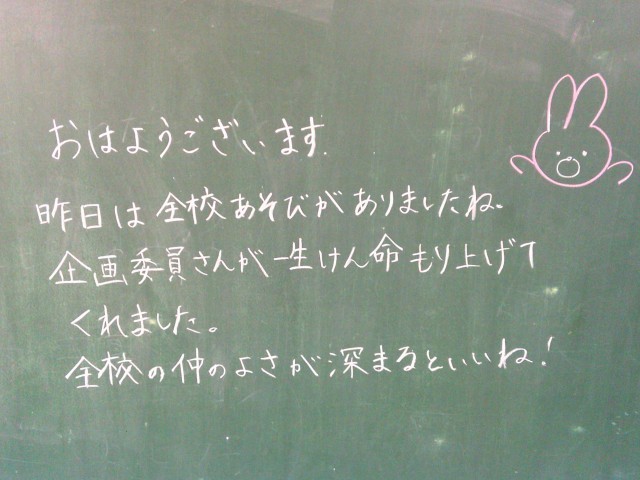 おはようございます.
昨日は全校あそびがありましたね。
企画委員さんが一生けん命もり上げて
くれました。
全校の仲のよさが深まるといいね!